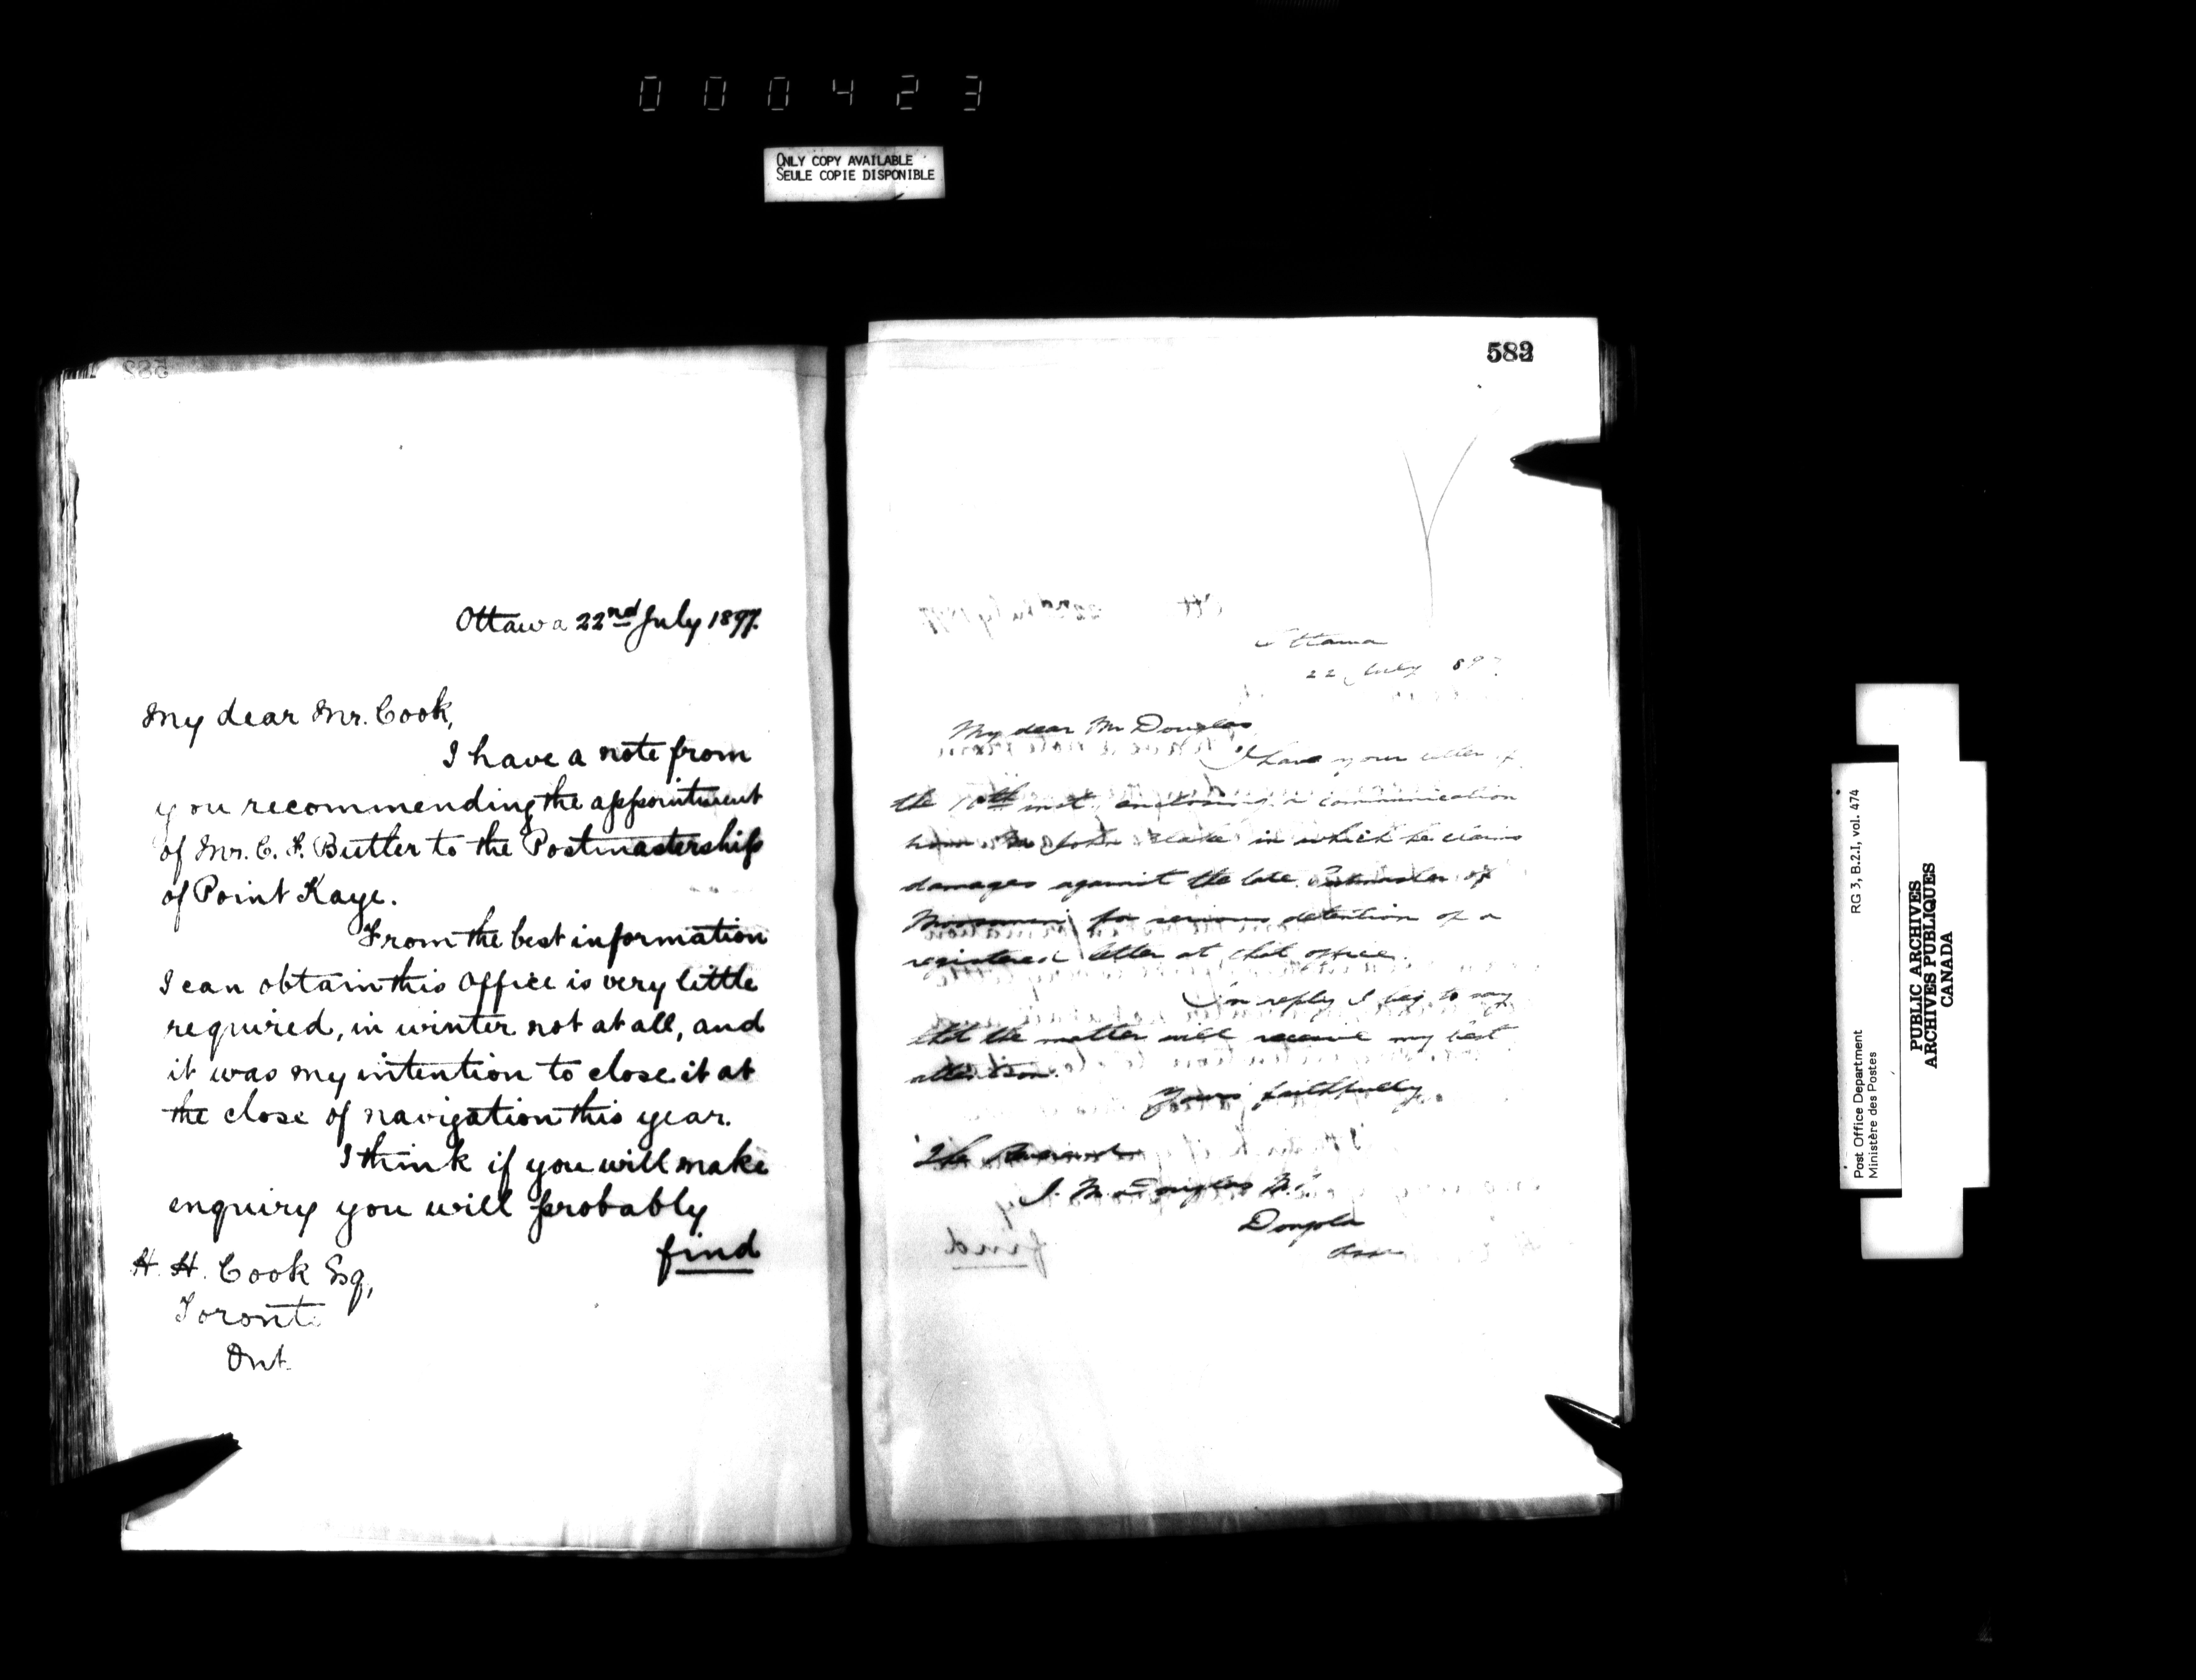 000423
ONLY COPY AVAILABLE
SEULE COPIE DISPONIBLE
Ottawa 22nd July 1897.
My dear Mr. Cook,
I have a note from
you recommending the appointment
of Mr. C. F. Butler to the Postmastership
of Point Kaye.
From the best information
I can obtain this office is very little
required, in winter not at all, and
it was my intention to close it at
the close of navigation this year.
I think if you will make
enquiry you will probably
find
H. H. Cook Esq,
Toronto
Ont.
582
Ottawa
22 July 897
My dear Mr Douglas
I have your letter of
the inst. enclosing a communication
from Mr John in which he claims
damages against the late Postmaster of
Moosomin for serious detention of a
registered letter at that office.
In reply I beg to say
that the matter will receive my best
attention.
Yours faithfully
The Reverend
J. M. Douglas M.P.
Assa
Post Office Department
Ministère des Postes
RG 3, B.2.1, vol. 474
PUBLIC ARCHIVES
ARCHIVES PUBLIQUES
CANADA